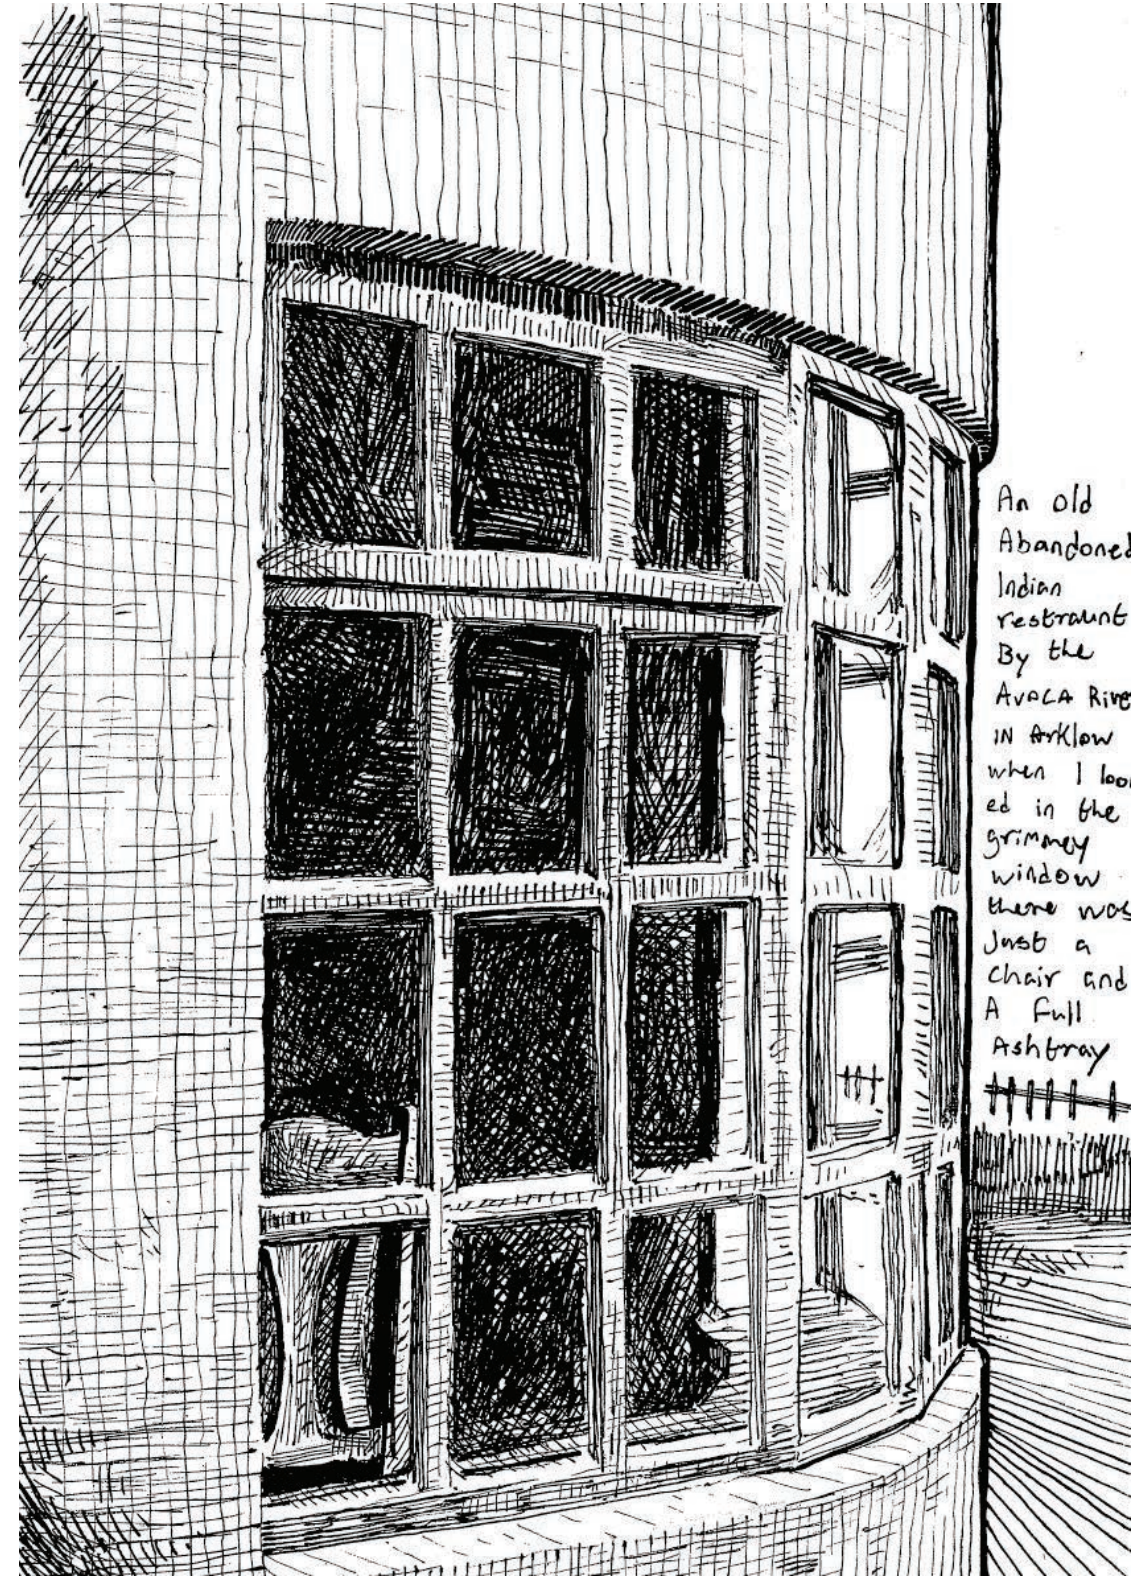 An old
Abandoned
Indian
restraunt
By the
AVOCA Rive
IN Arklow
when I loo
ed in the
grimmey
window
there was
Just a
Chair and
A Full
Ashtray